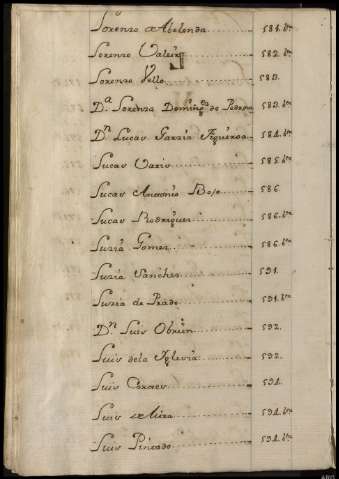 Lorenzo de Abelenda 581. bta
Lorenzo Valeir 582. bta
Lorenzo Vello 583.
Da. Lorenza Doming.s de Pedrosa 583. bta
Dn. Lucas Garzia Figueroa 584. bta
Lucas Vario 585. bta
Lucas Antonio Boso 586.
Lucas Rodriguez 586. bta
Luzia Gomez 586. bta
Luzia Sanchez 591.
Luzia de Prado 591. bta
Dn. Luis Obrien 592.
Luis dela Yglesia 592.
Luis 594.
Luis 594. bta
Luis Pintado 594. bta